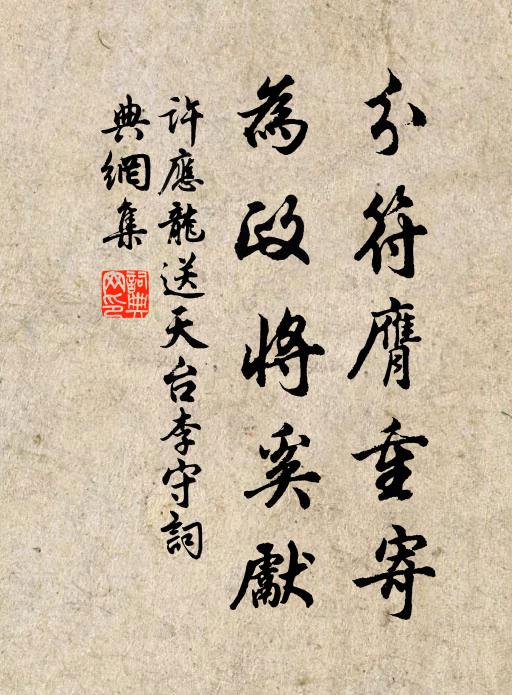 分符膺重寄
為政將奚獻
許應龍送天台李守詞
典網集
詞典網印